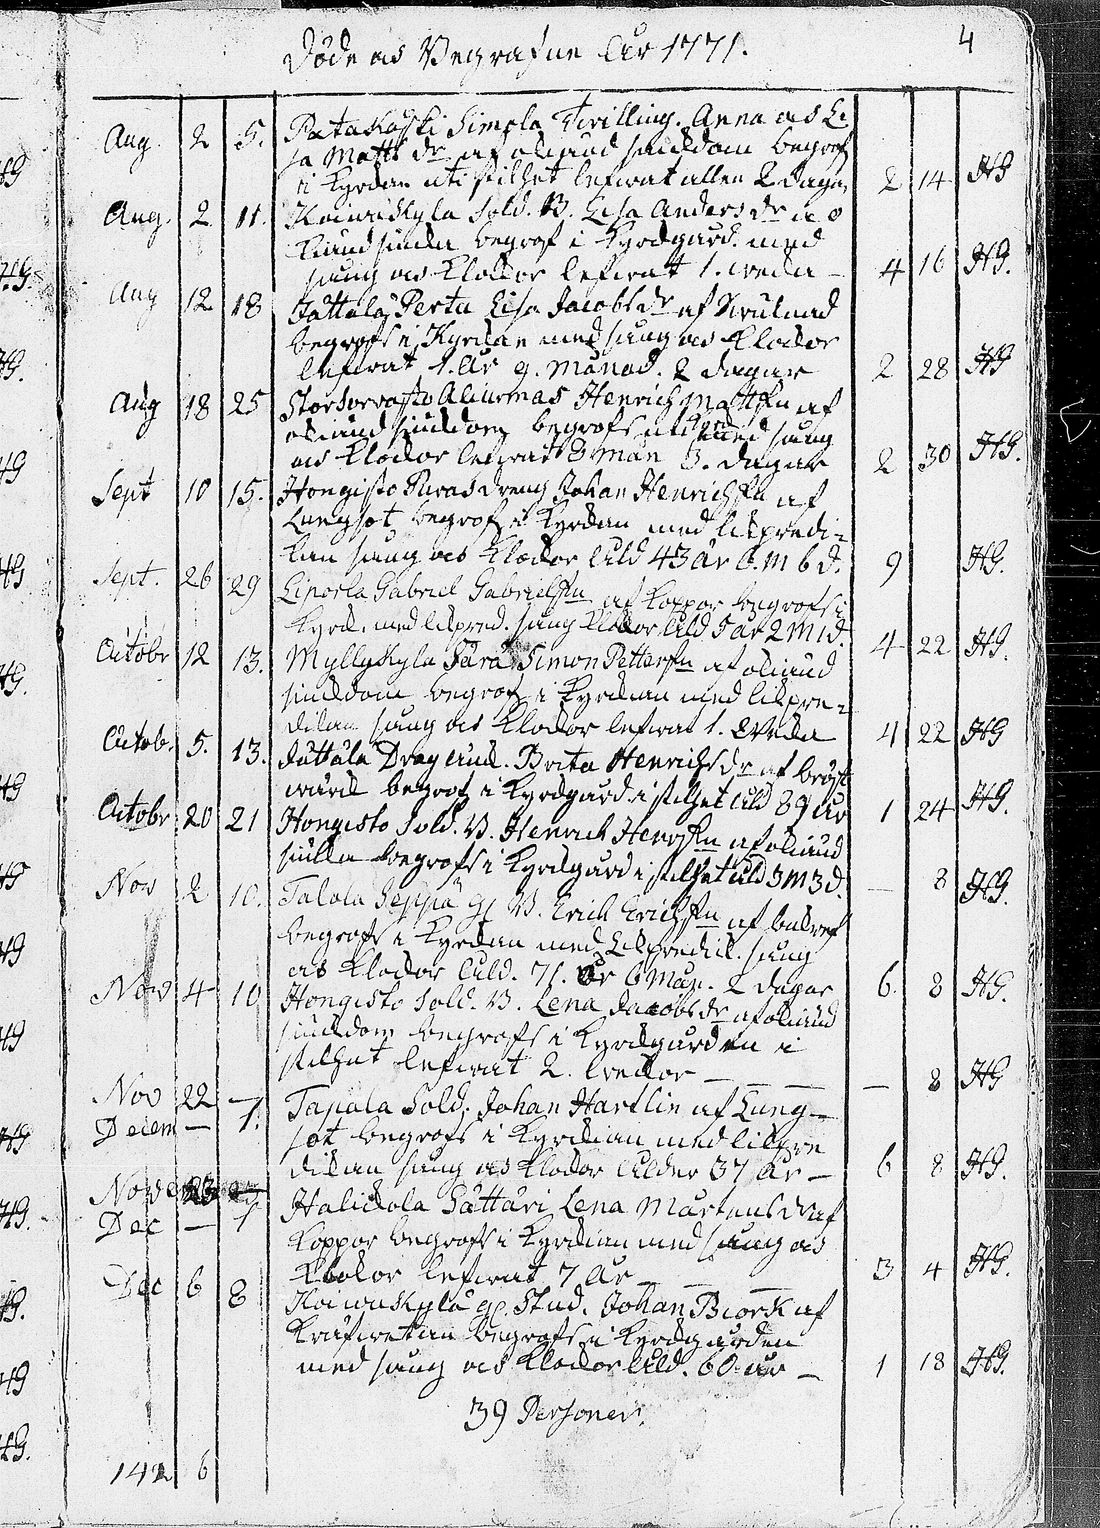 Döde och Begrafne Åhr 1771. 4
Aug. 2 5. Patakoski Simola Twilling. Anna och Li
sa Matts dr. af okänd siukdom begrof
i Kyrckan uti stilhet lefwat allen 2 dagar 2 14 HG
Aug. 2 11. Koiwukyla Sold. B. Lisa Anders dr. a o
känd siuka begrof i Kyrckgård. med
sång och Klockor lefwat 1. wecka 4 16 HG.
Aug 12 18 Jattala Perta Lisa Jacobs dr af
begrofs i Kyrckan med sång och Klockor
lefwat 1. År 9. Månad. 2 dagar 2 28 HG
Aug 18 25 Henrich Matts Sn af
okänd siukdom begrofs med sång
och Klockor lefwat 8 Mån 3. dagar 2 30 HG.
Sept 10 15. Hongisto Paras dreng Johan Henrichs Sn af
Lungsot begrof i Kyrckan med likpredi-
kan sång och Klockor åld 43 år 6. m 6 d. 9 HG.
Sept. 26 29 Lipola Gabriel Gabriels Sn af Koppor begrofs i
Kyrck. med likpred. sång Klockor åld 5 år 2 M 1 d. 4 22 HG.
Octobr 12 13. Myllykyla Simon Petters Sn af okänd
siukdom begrof i Kyrckian med likpre-
dikan sång och Klockor lefwat 1. Wecka 4 22 HG
Octob. 5. 13. Jattala Brita Henrichs dr af bröst
wärck begrof i Kyrckgård i stilhet åld 89 år 1 24 HG.
Octobr 20 21 Hongisto Sold. B. Henrich Henrichs Sn af okänd
siuka begrofs i Kyrckgård i stilhet åld 3 M 3 d. — 8 HG.
Nov 2 10. Talola Seppä gl. B. Erich Erichs Sn af
begrofs i Kyrckan med Likpredik. sång
och Klockor åld. 71. År 6 Mån. 2 dagar 6. 8 HG.
Nov 4 10 Hongisto Sold. B. Lena Jacobs dr af okänd
siukdom begrofs i Kyrckgården i
stilhet lefwat 2. weckor — 8 HG
Nov 22 —
Decem — 1. Tapala Sold. Johan Hartlin af Lung-
sot begrofs i Kyrckian med likpre
dikan sång och Klockor ålder 37 år — 6 8 HG.
Nove 23
Dec — 1 Halickola Sattari Lena Mårtens dr af
Koppor begrofs i Kyrckian med sång och
Klockor lefwat 7 år 3 4 HG.
Dec 6 8 Koiwukylä gl. Stud. Johan Biörk af
Kräfwetan begrofs i Kyrckgården
med sång och Klockor åld. 60 år — 1 18 HG.
39 Personer.
142 6